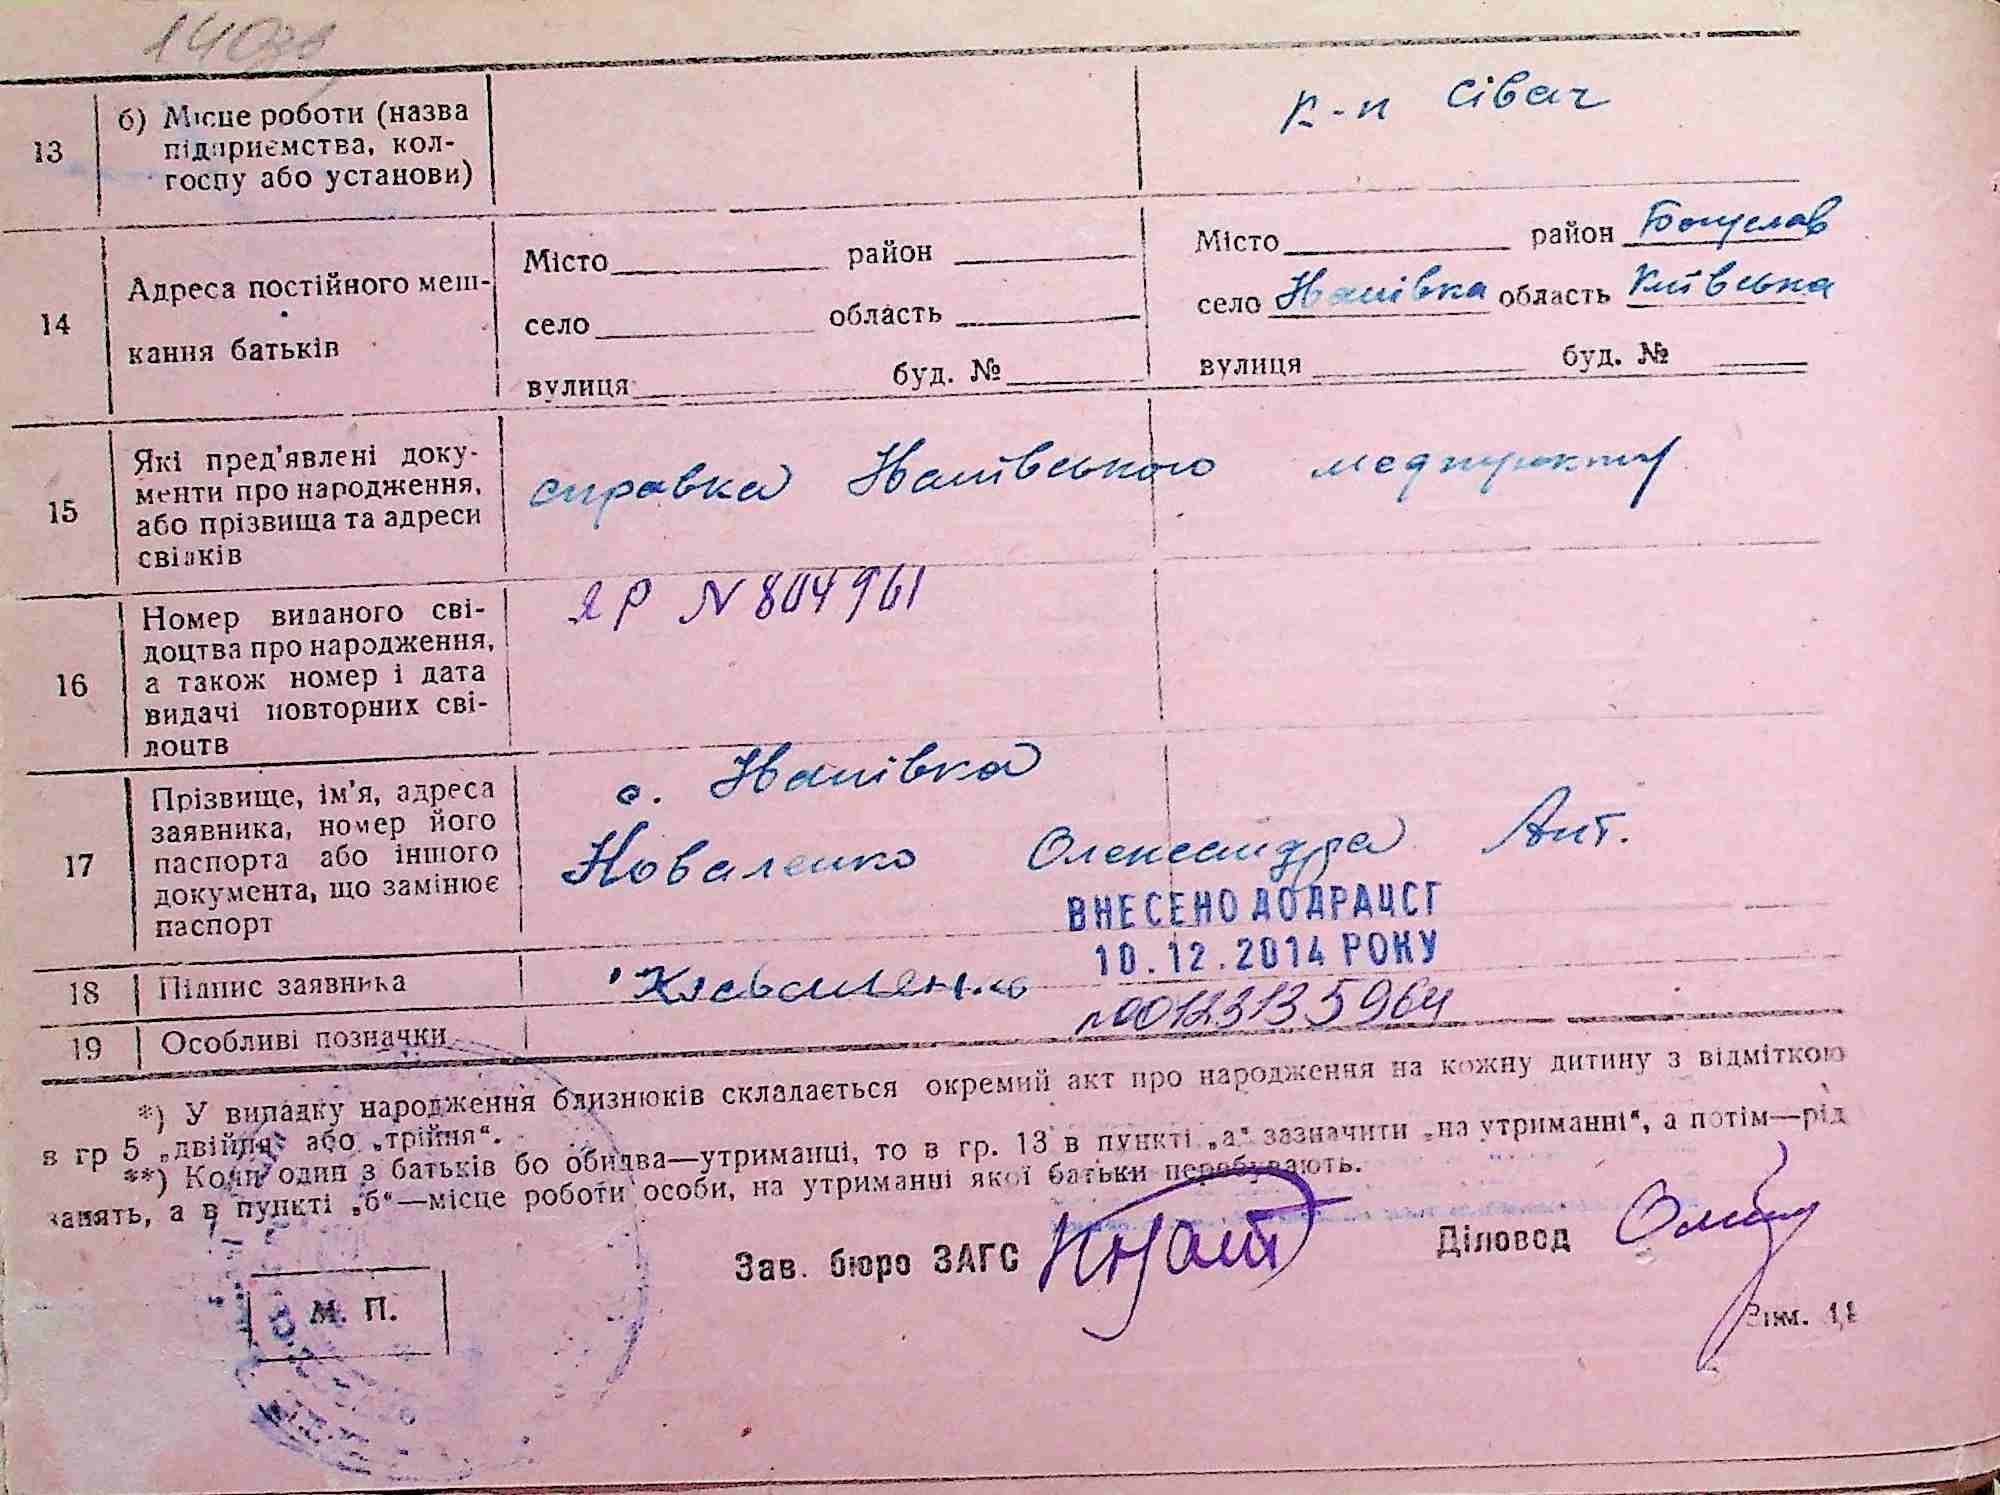 13
б) Місце роботи (назва
підприємства, кол-
госпу або установи)
к-п Сівач
14
Адреса постійного меш-
кання батьків
Місто район
село область
вулиця буд. №
Місто район Богуслав
село область Київська
вулиця буд. №
15
Які пред'явлені доку-
менти про народження,
або прізвища та адреси
свідків
справка медпункту
16
Номер виданого сві-
доцтва про народження,
а також номер і дата
видачі повторних сві-
доцтв
ЯР N 804961
17
Прізвище, ім'я, адреса
заявника, номер його
паспорта або іншого
документа, що замінює
паспорт
с.
Коваленко Олександра Ант.
ВНЕСЕНО ДО ДРАЦСГ
10.12.2014 РОКУ
18
Підпис заявника
Коваленко
№00123135964
19
Особливі позначки
*) У випадку народження близнюків складається окремий акт про народження на кожну дитину з відміткою
в гр 5 „двійня“ або „трійня“.
**) Коли один з батьків бо обидва—утриманці, то в гр. 13 в пункті „а“ зазначити „на утриманні“, а потім—рід
занять, а в пункті „б“—місце роботи особи, на утриманні якої батьки перебувають.
Зав. бюро ЗАГС
Діловод
М. П.